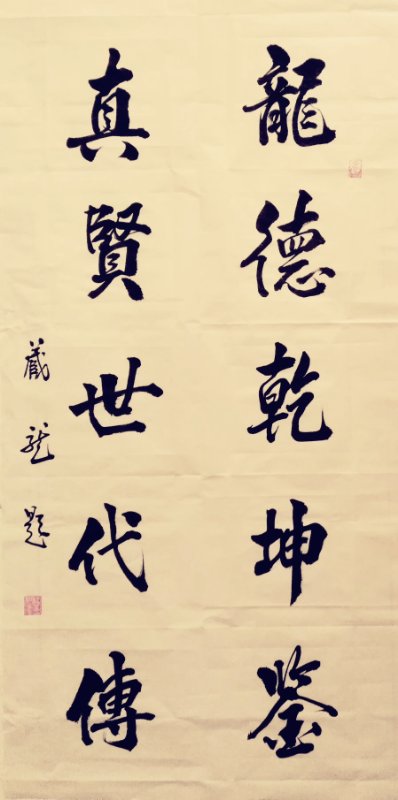 龍德乾坤鉴
真賢世代傳
藏龍題